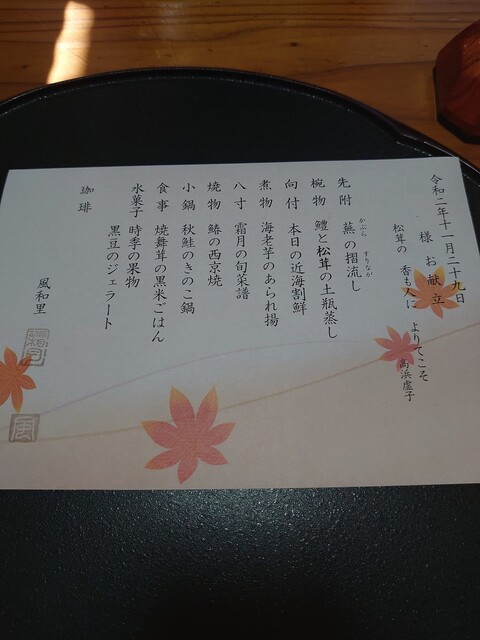 令和二年十一月二十九日
様 お献立
松茸の 香も人に よりてこそ
高浜虚子
先附 蕪の摺流し
かぶら すりなが
椀物 鱧と松茸の土瓶蒸し
向付 本日の近海割鮮
煮物 海老芋のあられ揚
八寸 霜月の旬菜譜
焼物 鰆の西京焼
小鍋 秋鮭のきのこ鍋
食事 焼舞茸の黒米ごはん
水菓子 時季の果物
黒豆のジェラート
珈琲
風和里
風